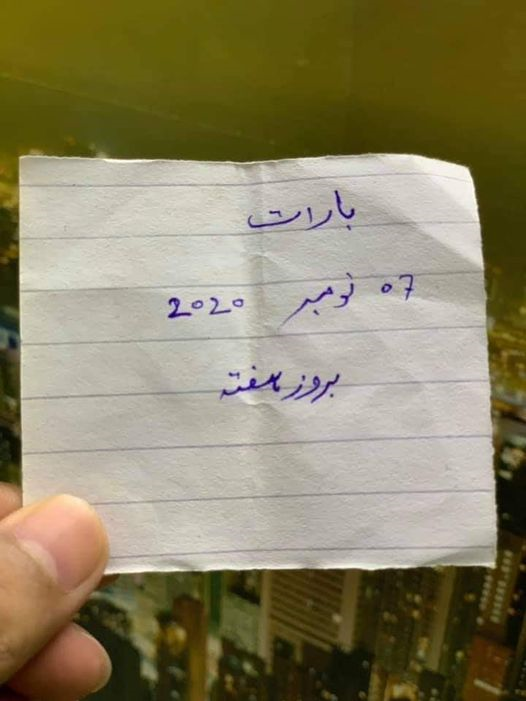 بارات
07 نومبر 2020
بروز ہفتہ